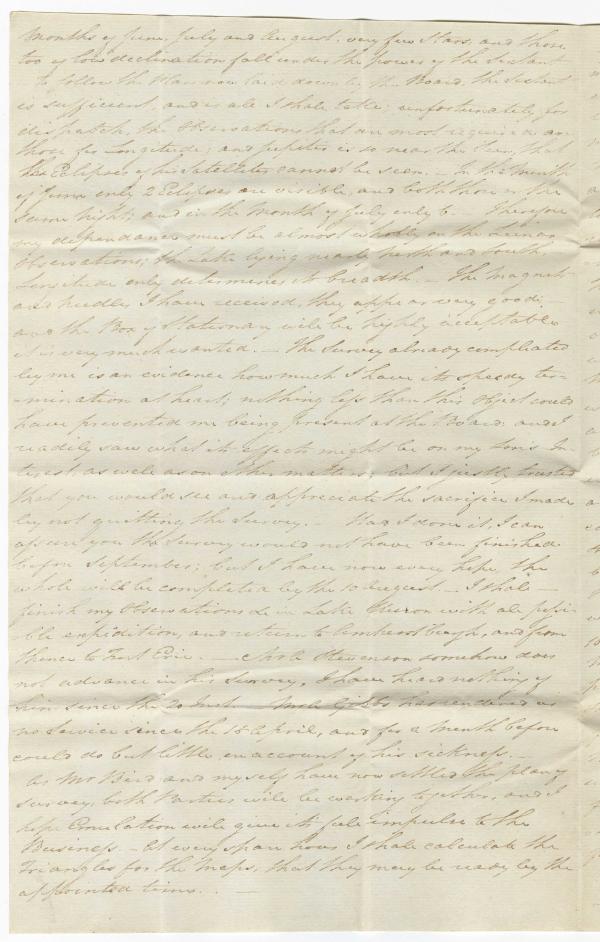 Months of June, July and August, very few Stars, and those
too of low declination fall under the power of the Sextant
to follow the Plan now laid down by the Board, the Sextant
is sufficient, and is all I shall take; unfortunately for
dispatch, the Observations that are most required are
those for Longitude; and Jupiter is so near the Sun, that
the Eclipses of his Satellites cannot be seen. — In the Month
of June only 2 Eclipses are visible, and both those in the
same Night; and in the Month of July only 6. — Therefore
my dependance must be almost wholly on the Lunar
Observations; the Lake lying nearly North and South,
Longitude only determines its breadth. — The Magnet
and needles I have received, they appear very good; —
and the Box of Stationary will be highly acceptable
it is very much wanted. — The Survey already completed
by me is an evidence how much I have its speedy ter-
-mination at heart; nothing less than this Object could
have prevented me being present at the Board: and I
readily saw what its effects might be on my Son's In-
terest, as well as on other matters; but I justly trusted
that you would see and appreciate the sacrifice I made
by not quitting the Survey. — Had I done it, I can
assure you the Survey would not have been finished
before September; but I have now every hope the
whole will be completed by the 10 August. — I shall —
finish my Observations &c in Lake Huron with all possi-
ble expedition, and return to Amherstburgh, and from
thence to Fort Erie. — Mr Stevenson somehow does
not advance in his Survey, I have heard nothing of
him since the 20 Inst. — Mr Gibbs has rendered us
no Service since the 15 April, and for a Month before
could do but little, on account of his sickness. —
As Mr Bird and myself have now settled the plan of
survey, both Parties will be working together, and I
hope Emulation will give its full impulse to the
Business. — At every spare hour I shall calculate the
Triangles for the Maps, that they may be ready by the
appointed time. . —